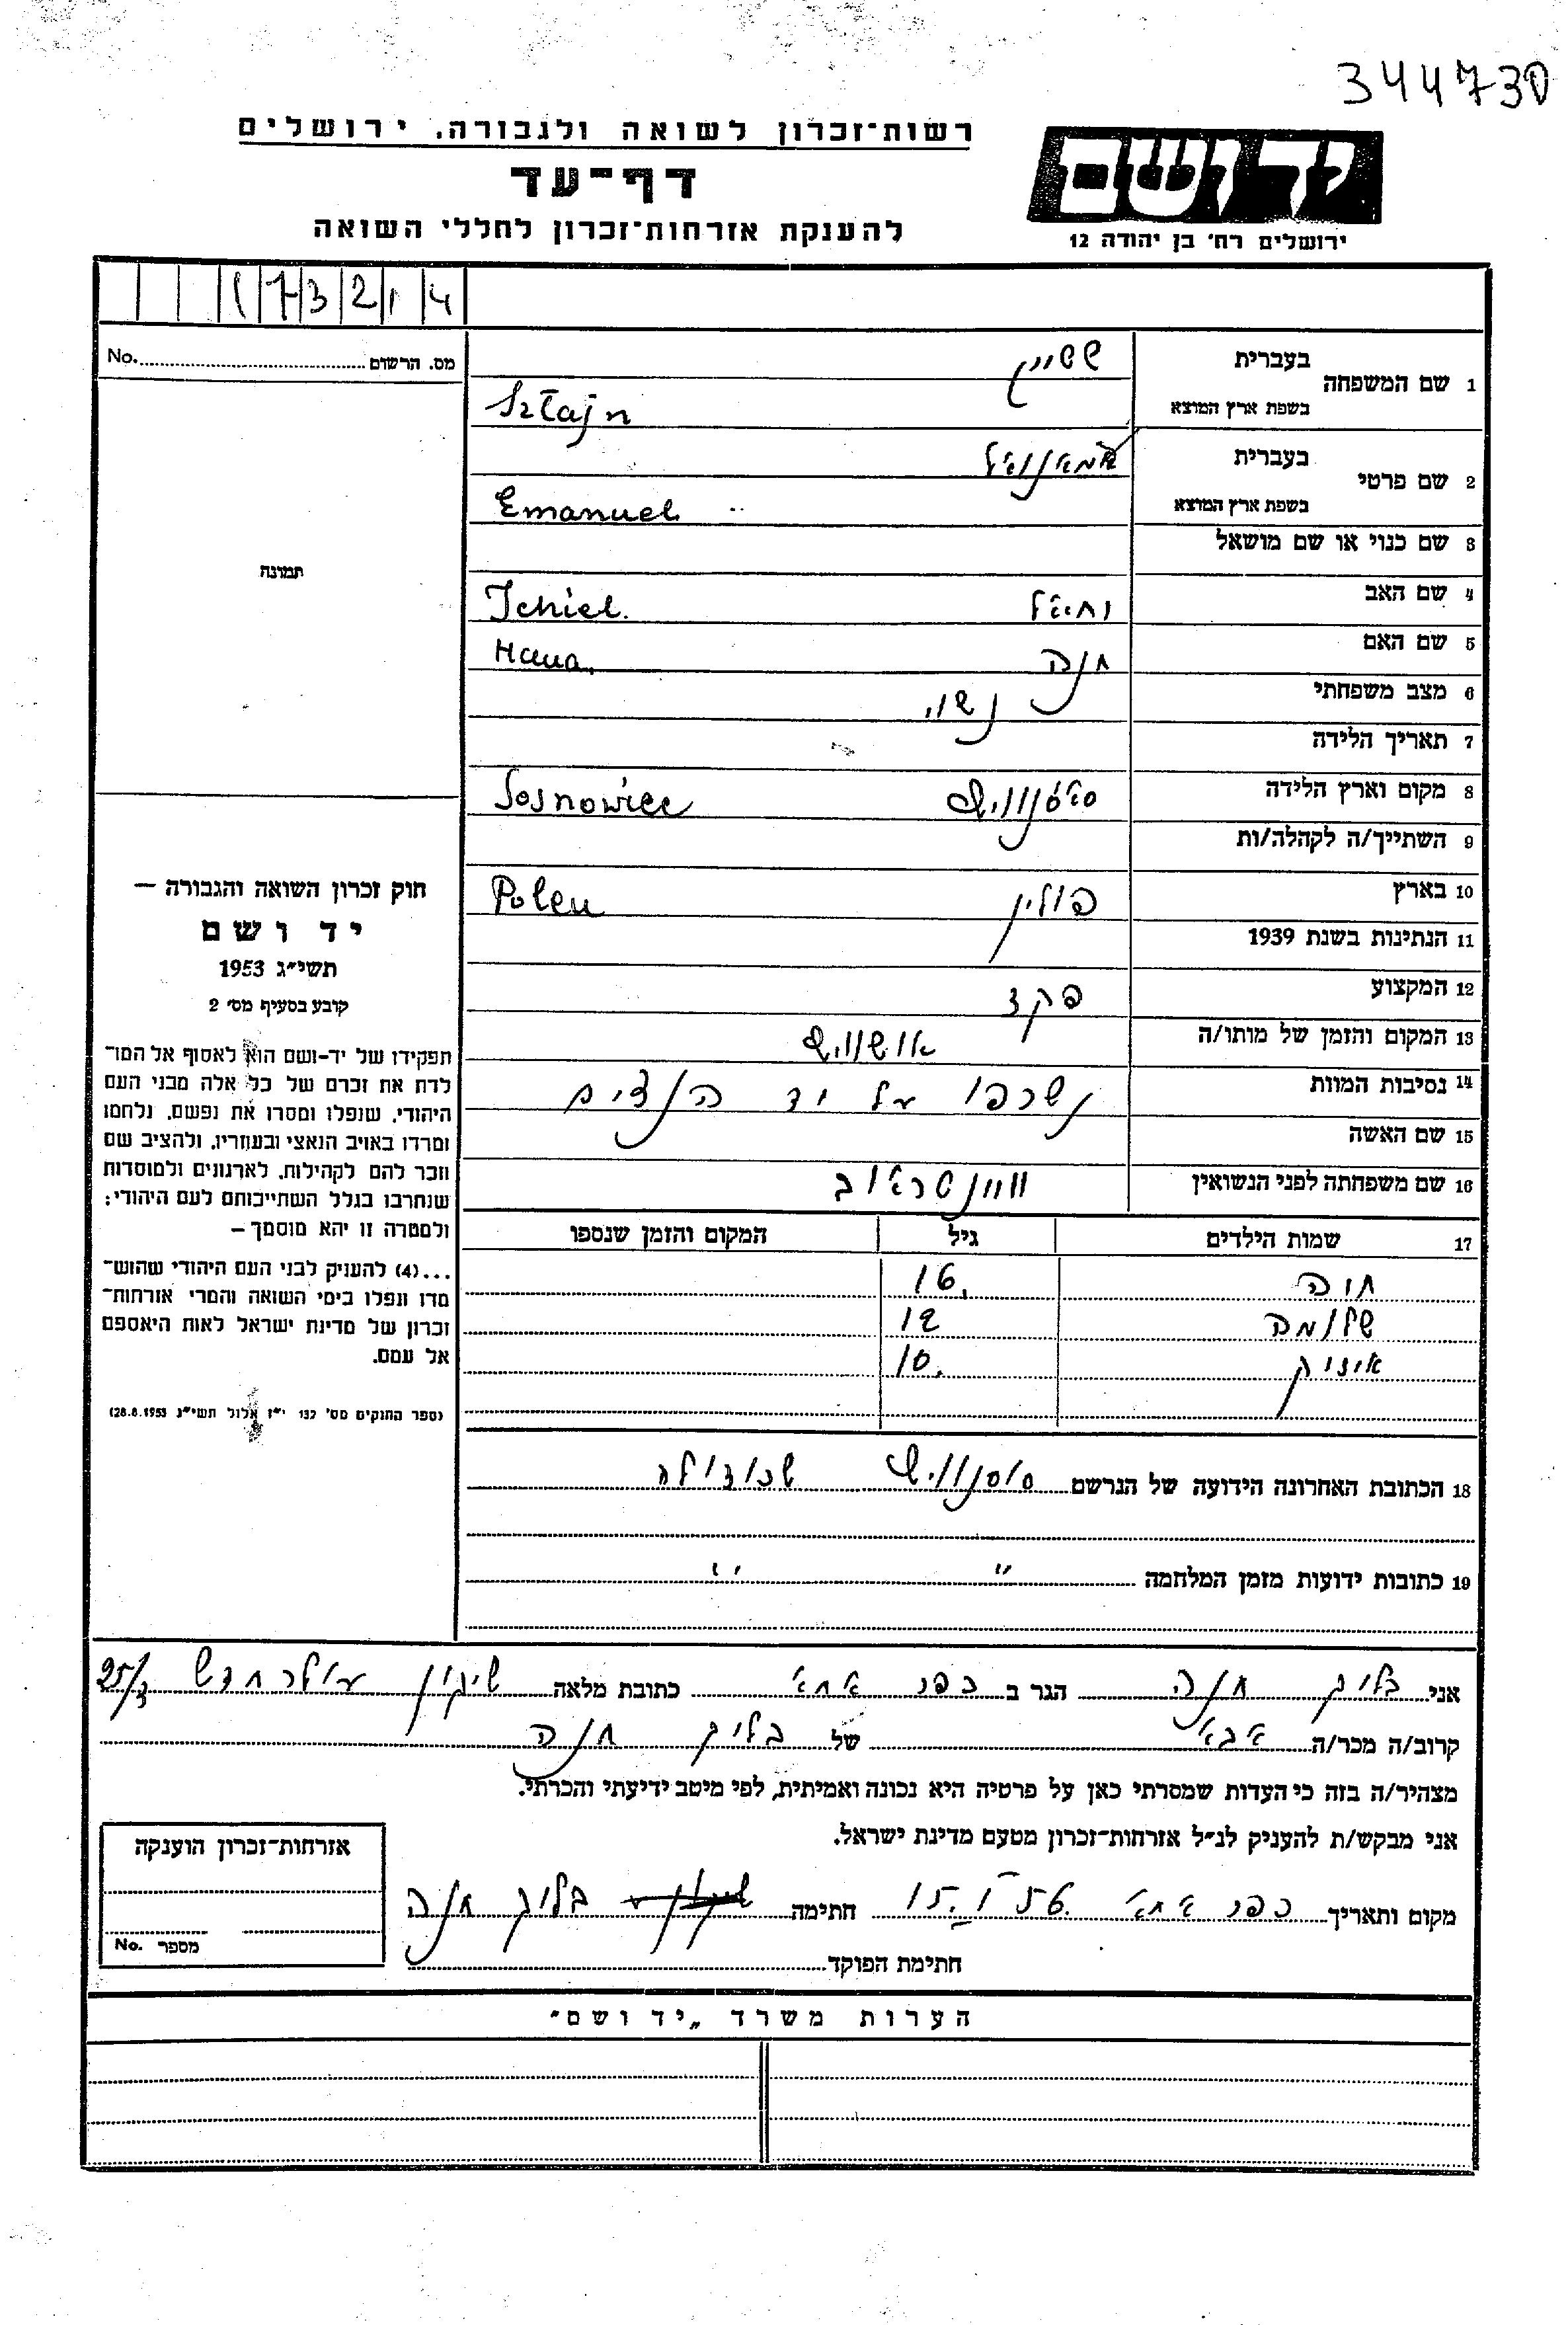 344730
רשות־זכרון לשואה ולגבורה. ירושלים
דף־עד
להענקת אזרחות־זכרון לחללי השואה
יד ושם
ירושלים רח׳ בן יהודה 12
מס. הרשום No.
תמונה
1 שם המשפחה
בעברית
בשפת ארץ המוצא Sztajn
2 שם פרטי
בעברית עמאנואל
בשפת ארץ המוצא Emanuel
3 שם כנוי או שם מושאל
4 שם האב יחיאל Ichiel.
5 שם האם חנה Hana
6 מצב משפחתי נשוי
7 תאריך הלידה
8 מקום וארץ הלידה Sosnowiec
9 השתייך/ה לקהלה/ות
10 בארץ פולין Polen
11 הנתינות בשנת 1939
12 המקצוע
13 המקום והזמן של מותו/ה אושוויץ
14 נסיבות המוות נשרפו על יד הנצים
15 שם האשה
16 שם משפחתה לפני הנשואין
17 שמות הילדים גיל המקום והזמן שנספו
חוה 16.
שלומה 12
איציק 10.
18 הכתובת האחרונה הידועה של הנרשם סוסנוויץ
19 כתובות ידועות מזמן המלחמה " "
חוק זכרון השואה והגבורה —
יד ושם
תשי״ג 1953
קובע בסעיף מס׳ 2
תפקידו של יד-ושם הוא לאסוף אל המו־
לדת את זכרם של כל אלה מבני העם
היהודי, שנפלו ומסרו את נפשם, נלחמו
ומרדו באויב הנאצי ובעוזריו, ולהציב שם
וזכר להם לקהילות, לארגונים ולמוסדות
שנחרבו בגלל השתייכותם לעם היהודי;
ולמטרה זו יהא מוסמך —
...(4) להעניק לבני העם היהודי שהוש־
מדו ונפלו בימי השואה והמרי אזרחות־
זכרון של מדינת ישראל לאות היאספם
אל עמם.
(ספר החוקים מס׳ 132 י״ז אלול תשי״ג 28.8.1953)
אני בליק חנה הגר ב כפר אתא כתובת מלאה שיכון עולה חדש 25/3
קרוב/ה מכר/ה אבא של בליק חנה
מצהיר/ה בזה כי העדות שמסרתי כאן על פרטיה היא נכונה ואמיתית, לפי מיטב ידיעתי והכרתי.
אני מבקש/ת להעניק לנ״ל אזרחות־זכרון מטעם מדינת ישראל.
מקום ותאריך כפר אתא 15. I 56. חתימה בליק חנה
חתימת הפוקד
אזרחות־זכרון הוענקה
מספר No.
הערות משרד „יד ושם״